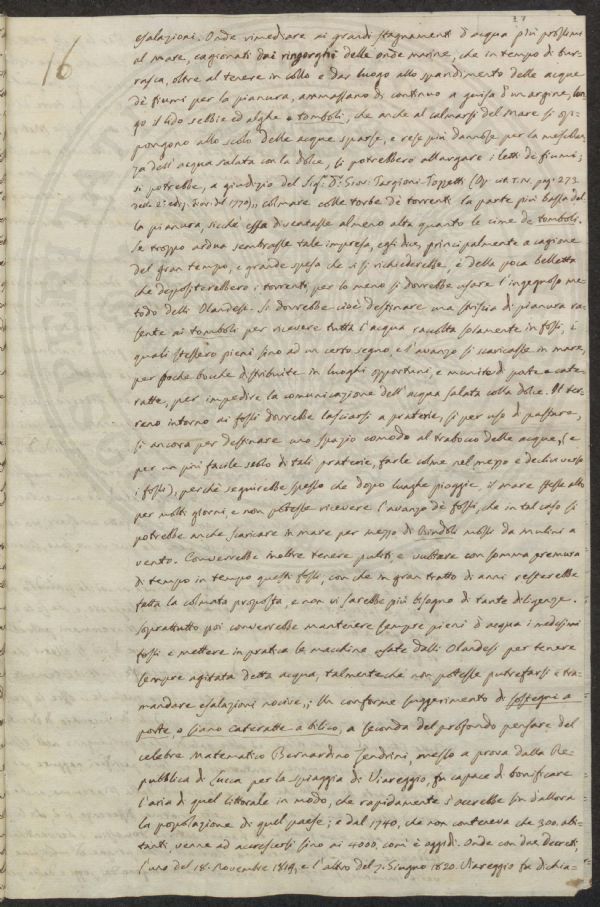 16
esalazioni. Onde rimediare ai grandi stagnamenti d'acqua più prossimi
al mare, cagionati dai ringorghi delle onde marine, che in tempo di bur-
rasca, oltre al tenere in collo e dar luogo allo spandimento delle acque
de' fiumi per la pianura, ammassano di continuo a guisa d'un argine, lun
go il lido selbie ed alghe e tomboli, che anche al calmarsi del mare si op-
pongono allo scolo delle acque sparse, e rese più dannose per la mescolan-
za dell'acqua salata con la dolce, si potrebbero allargare i letti de' fiumi;
si potrebbe, a giudizio del Sig.r D.r Giov: Targioni-Tozzetti (Op. cit. T. IV. pag. 273
della 2.a ediz. Fior. del 1770), colmare colle torbe de' torrenti la parte più bassa del-
la pianura, sicchè essa diventasse almeno alta quanto le cime de' tomboli.
Se troppo ardua sembrasse tale impresa, egli dice, principalmente a cagione
del gran tempo, e grande spesa che vi si richiederebbe, e della poca belletta
che depositerebbero i torrenti, per lo meno si dovrebbe usare l'ingegnoso me-
todo delli Olandesi. Si dovrebbe cioè destinare una striscia di pianura ra-
sente ai tomboli per ricevere tutta l'acqua raccolta solamente in fossi, i
quali stessero pieni sino ad un certo segno, e l'avanzo si scaricasse in mare,
per poche bocche distribuite in luoghi opportuni, e munite di porte e cate-
ratte, per impedire la comunicazione dell'acqua salata colla dolce. Il ter-
reno intorno ai fossi dovrebbe lasciarsi a praterie, sì per uso di pasture,
sì ancora per destinare uno spazio comodo al trabocco delle acque, (e
per un più facile scolo di tali praterie, farle colme nel mezzo e declivi verso
i fossi), perchè seguirebbe spesso che dopo lunghe pioggie, il mare stesse alto
per molti giorni, e non potesse ricevere l'avanzo de' fossi, che in tal caso si
potrebbe anche scaricare in mare per mezzo di Bindoli mossi da mulini a
vento. Converrebbe inoltre tenere puliti e vuotare con somma premura
di tempo in tempo questi fossi, con che in gran tratto di anni resterebbe
fatta la colmata proposta, e non vi sarebbe più bisogno di tante diligenze.
Soprattutto poi converrebbe mantenere sempre pieni d'acqua i medesimi
fossi e mettere in pratica le macchine usate dalli Olandesi per tenere
sempre agitata detta acqua, talmentechè non potesse putrefarsi e tra-
mandare esalazioni nocive,; Un conforme suggerimento di sostegni a
porte, o siano cateratte a bilico, a seconda del profondo pensare del
celebre Matematico Bernardino Zendrini, messo a prova dalla Re-
pubblica di Lucca per la spiaggia di Viareggio, fu capace di bonificare
l'aria di quel littorale in modo, che rapidamente s'accrebbe fin d'allora
la popolazione di quel paese; e dal 1740, che non conteneva che 300. abi-
tanti, venne ad accrescersi sino ai 4000. com'è oggidì. Onde con due Decreti,
l'uno del 18. Novembre 1819, e l'altro del 7. Giugno 1820. Viareggio fu dichia-